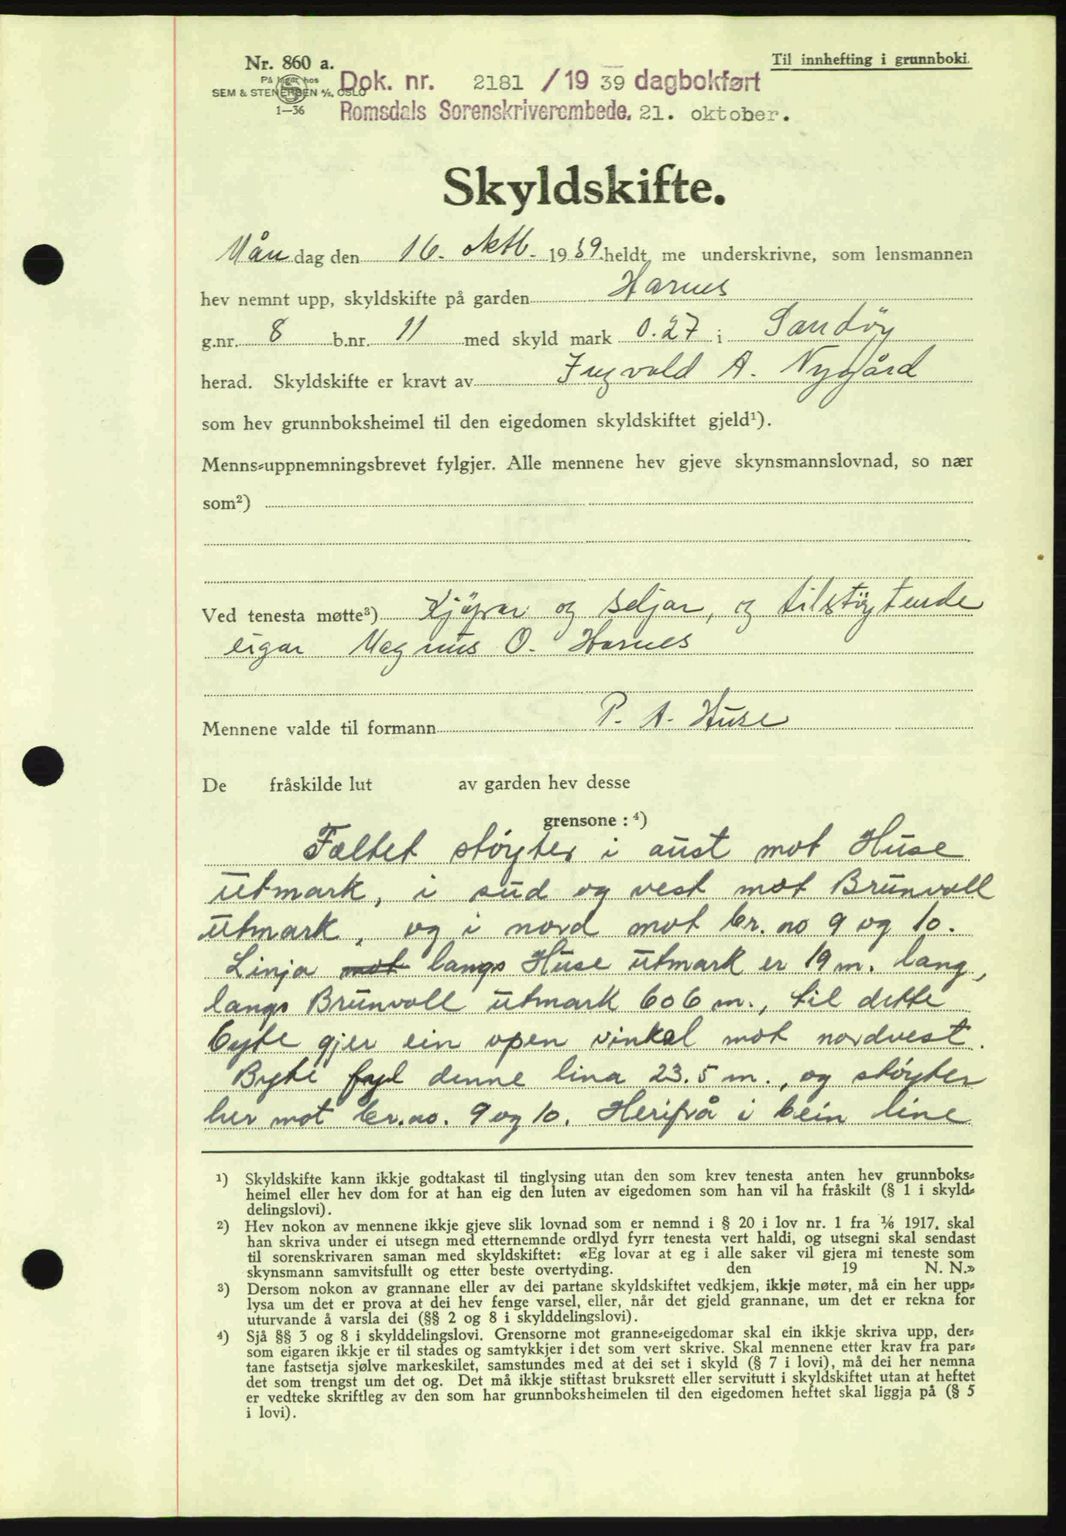 Nr. 860 a.
På lager hos
SEM & STENERSEN A/S, OSLO
1—36
Til innhefting i grunnboki.
Dok. nr. 2181 /19 39 dagbokført
Romsdals Sorenskriverembede. 21. oktober.
Skyldskifte.
Måndag den 16. oktb. 1939. heldt me underskrivne, som lensmannen
hev nemnt upp, skyldskifte på garden Harnes
g.nr. 8 b.nr. 11 med skyld mark 0.27 i Sandöy
herad. Skyldskifte er kravt av Ingvald A. Nygård
som hev grunnboksheimel til den eigedomen skyldskiftet gjeld¹).
Menns-uppnemningsbrevet fylgjer. Alle mennene hev gjeve skynsmannslovnad, so nær
som²)
Ved tenesta møtte³) Kjöpar og seljar, og tilstöytende
eigar Magnus O. Harnes
Mennene valde til formann P. A. Huse
De fråskilde lut av garden hev desse
grensone : ⁴)
Feltet stöyter i aust mot Huse
utmark, i sud og vest mot Brunvoll
utmark, og i nord mot br. no 9 og 10.
Linja mot langs Huse utmark er 19 m. lang,
langs Brunvoll utmark 606 m., til dette
byte gjer ein open vinkel mot nordvest.
Byte fyl denne lina 23.5 m., og stöyter
her mot br. no. 9 og 10. Herifrå i bein line
¹) Skyldskifte kann ikkje godtakast til tinglysing utan den som krev tenesta anten hev grunnboks-
heimel eller hev dom for at han eig den luten av eigedomen som han vil ha fråskilt (§ 1 i skyld-
delingslovi).
²) Hev nokon av mennene ikkje gjeve slik lovnad som er nemnd i § 20 i lov nr. 1 fra 1/6 1917, skal
han skriva under ei utsegn med etternemnde ordlyd fyrr tenesta vert haldi, og utsegni skal sendast
til sorenskrivaren saman med skyldskiftet: «Eg lovar at eg i alle saker vil gjera mi teneste som
skynsmann samvitsfullt og etter beste overtyding. den 19 N. N.»
³) Dersom nokon av grannane eller av dei partane skyldskiftet vedkjem, ikkje møter, må ein her upp-
lysa um det er prova at dei hev fenge varsel, eller, når det gjeld grannane, um det er rekna for
uturvande å varsla dei (§§ 2 og 8 i skylddelingslovi).
⁴) Sjå §§ 3 og 8 i skylddelingslovi. Grensorne mot granne-eigedomar skal ein ikkje skriva upp, der-
som eigaren ikkje er til stades og samtykkjer i det som vert skrive. Skal mennene etter krav fra par-
tane fastsetja sjølve markeskilet, samstundes med at dei set i skyld (§ 7 i lovi), må dei her nemna
det som trengst um det og. Det må ikkje stiftast bruksrett eller servitutt i skyldskiftet utan at heftet
er vedteke skriftleg av den som har grunnboksheimelen til den eigedomen heftet skal liggja på (§ 5
i lovi).